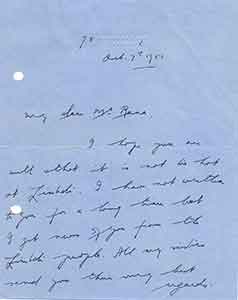 78
Oct. 7th 1951
My dear Mr Rana
I hope you are
well & that it is not so hot
at Limbdi. I have not written
to you for a long time but
I get news of you from the
Limbdi people. All my
send you their very best
regards.